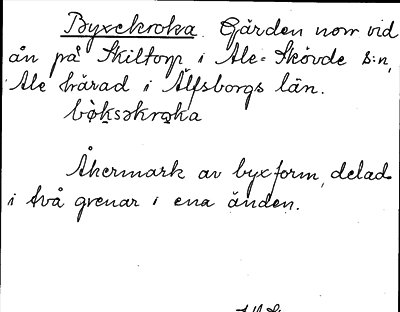 Byxekroka. Gärden norr vid
ån på Skiltorp i Ale-Skövde s:n,
Ale härad i Älfsborgs län.
bø̀ksəkro̱ka
Åkermark av byxform, delad
i två grenar i ena änden.